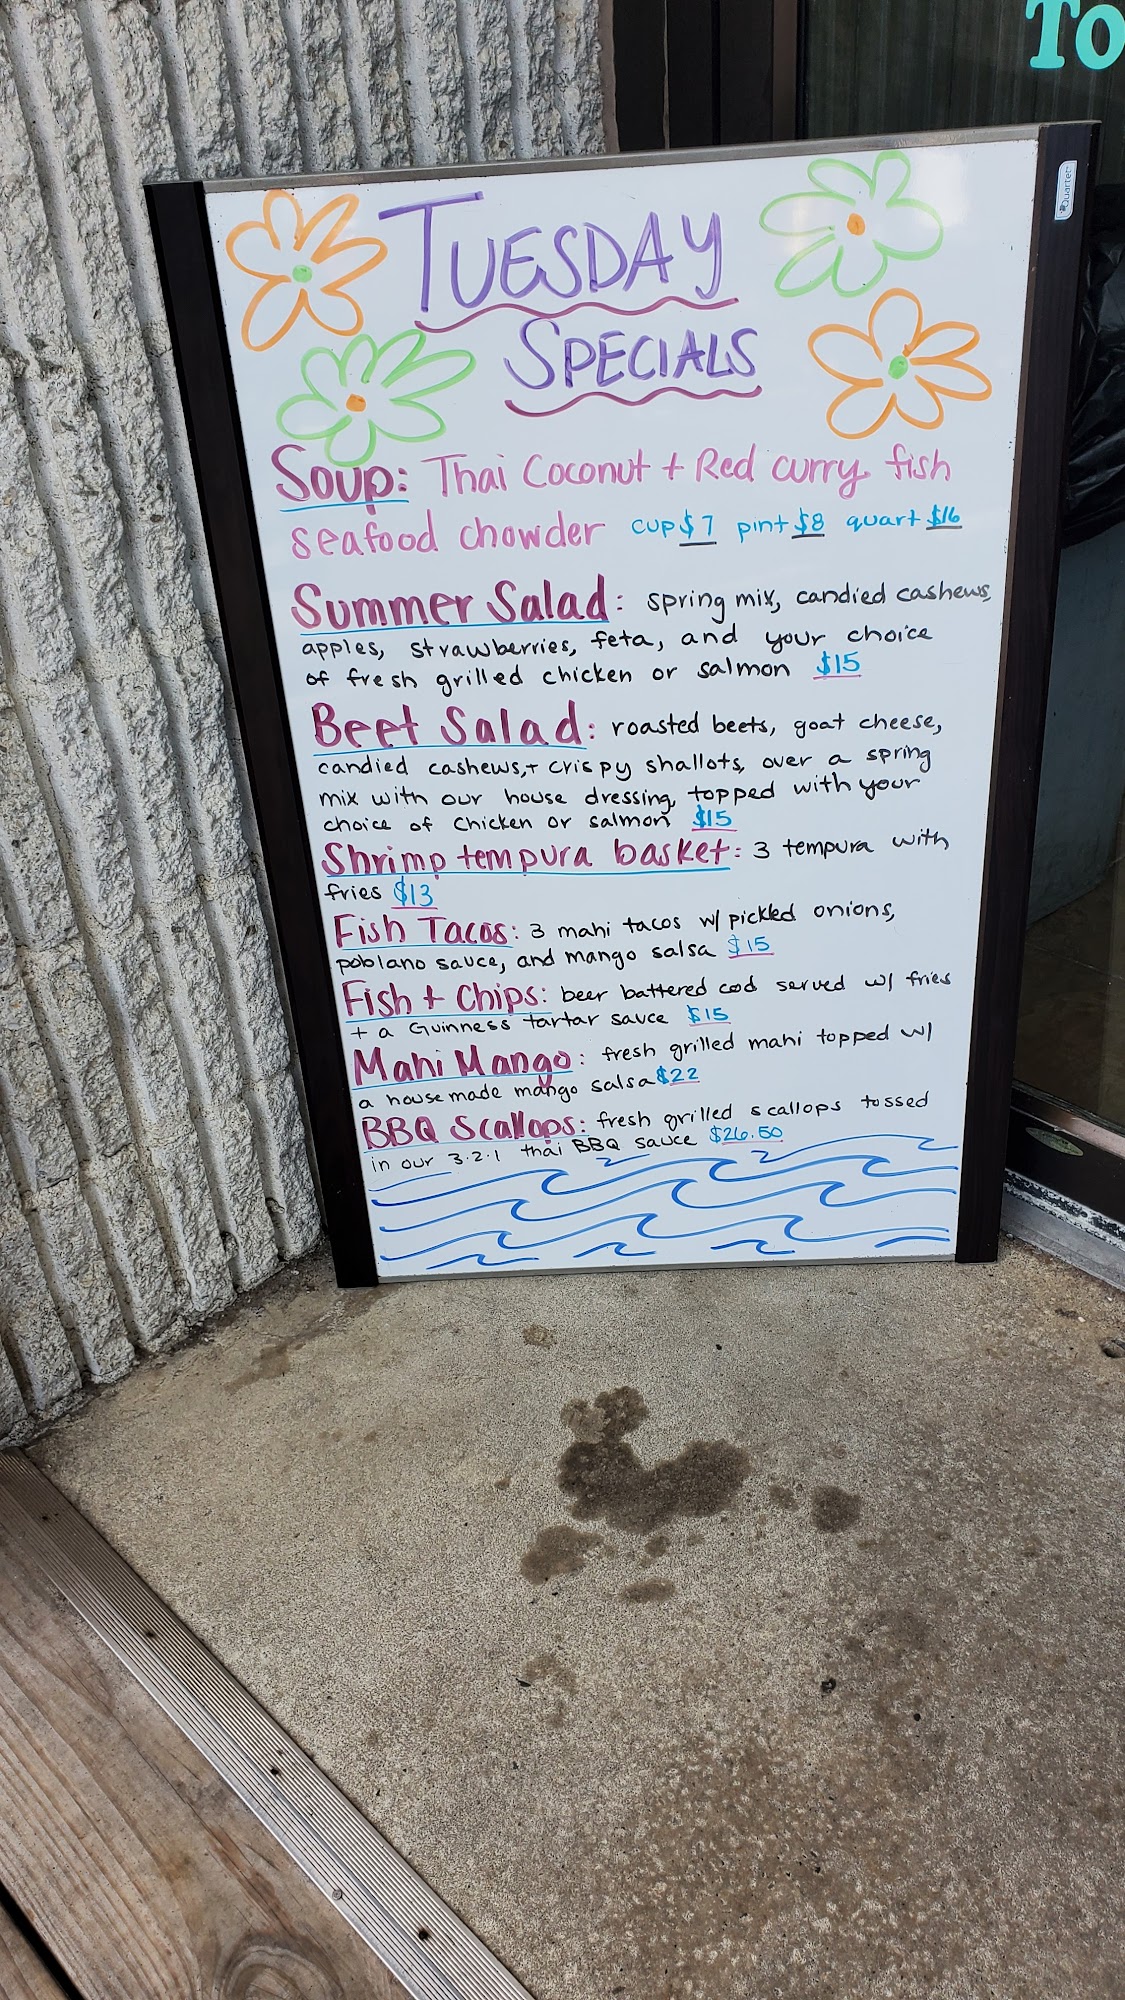 To
Quartet
TUESDAY
SPECIALS
Soup: Thai Coconut + Red curry fish
seafood chowder cup $7 pint $8 quart $16
Summer Salad: spring mix, candied cashews,
apples, strawberries, feta, and your choice
of fresh grilled chicken or salmon $15
Beet Salad: roasted beets, goat cheese,
candied cashews, + crispy shallots, over a spring
mix with our house dressing, topped with your
choice of chicken or salmon $15
Shrimp tempura basket: 3 tempura with
fries $13
Fish Tacos: 3 mahi tacos w/ pickled onions,
poblano sauce, and mango salsa $15
Fish + Chips: beer battered cod served w/ fries
+ a Guinness tartar sauce $15
Mahi Mango: fresh grilled mahi topped w/
a housemade mango salsa $22
BBQ Scallops: fresh grilled scallops tossed
in our 3.2.1 thai BBQ sauce $26.50